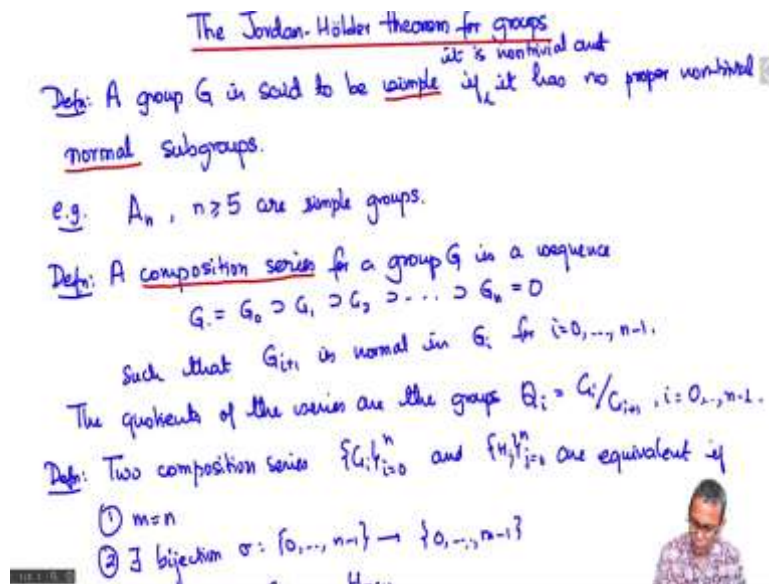 The Jordan-Hölder theorem for groups
it is nontrivial and
Defn: A group G is said to be simple if it has no proper non-trivial
normal subgroups.
e.g. Aₙ, n≥5 are simple groups.
Defn: A composition series for a group G is a sequence
G = G₀ ⊃ G₁ ⊃ G₂ ⊃ ... ⊃ Gₙ = 0
such that Gᵢ₊₁ is normal in Gᵢ for i=0,...,n-1.
The quotients of the series are the groups Qᵢ = Gᵢ/Gᵢ₊₁, i=0,..,n-1.
Defn: Two composition series {Gᵢ}ⁿᵢ₌₀ and {Hⱼ}ⁿⱼ₌₀ are equivalent if
① m=n
② ∃ bijection σ: {0,..., n-1} → {0,..., n-1}